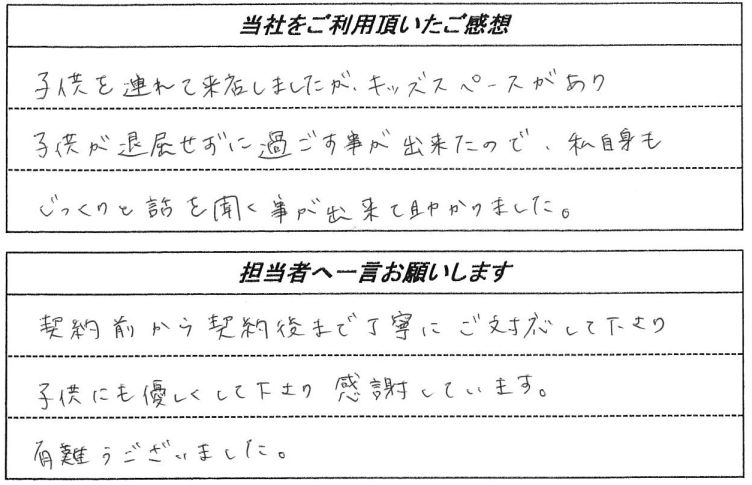 当社をご利用頂いたご感想
子供を連れて来店しましたが、キッズスペースがあり
子供が退屈せずに過ごす事が出来たので、私自身も
じっくりと話を聞く事が出来て助かりました。
担当者へ一言お願いします
契約前から契約後まで丁寧にご対応して下さり
子供にも優しくして下さり感謝しています。
有難うございました。